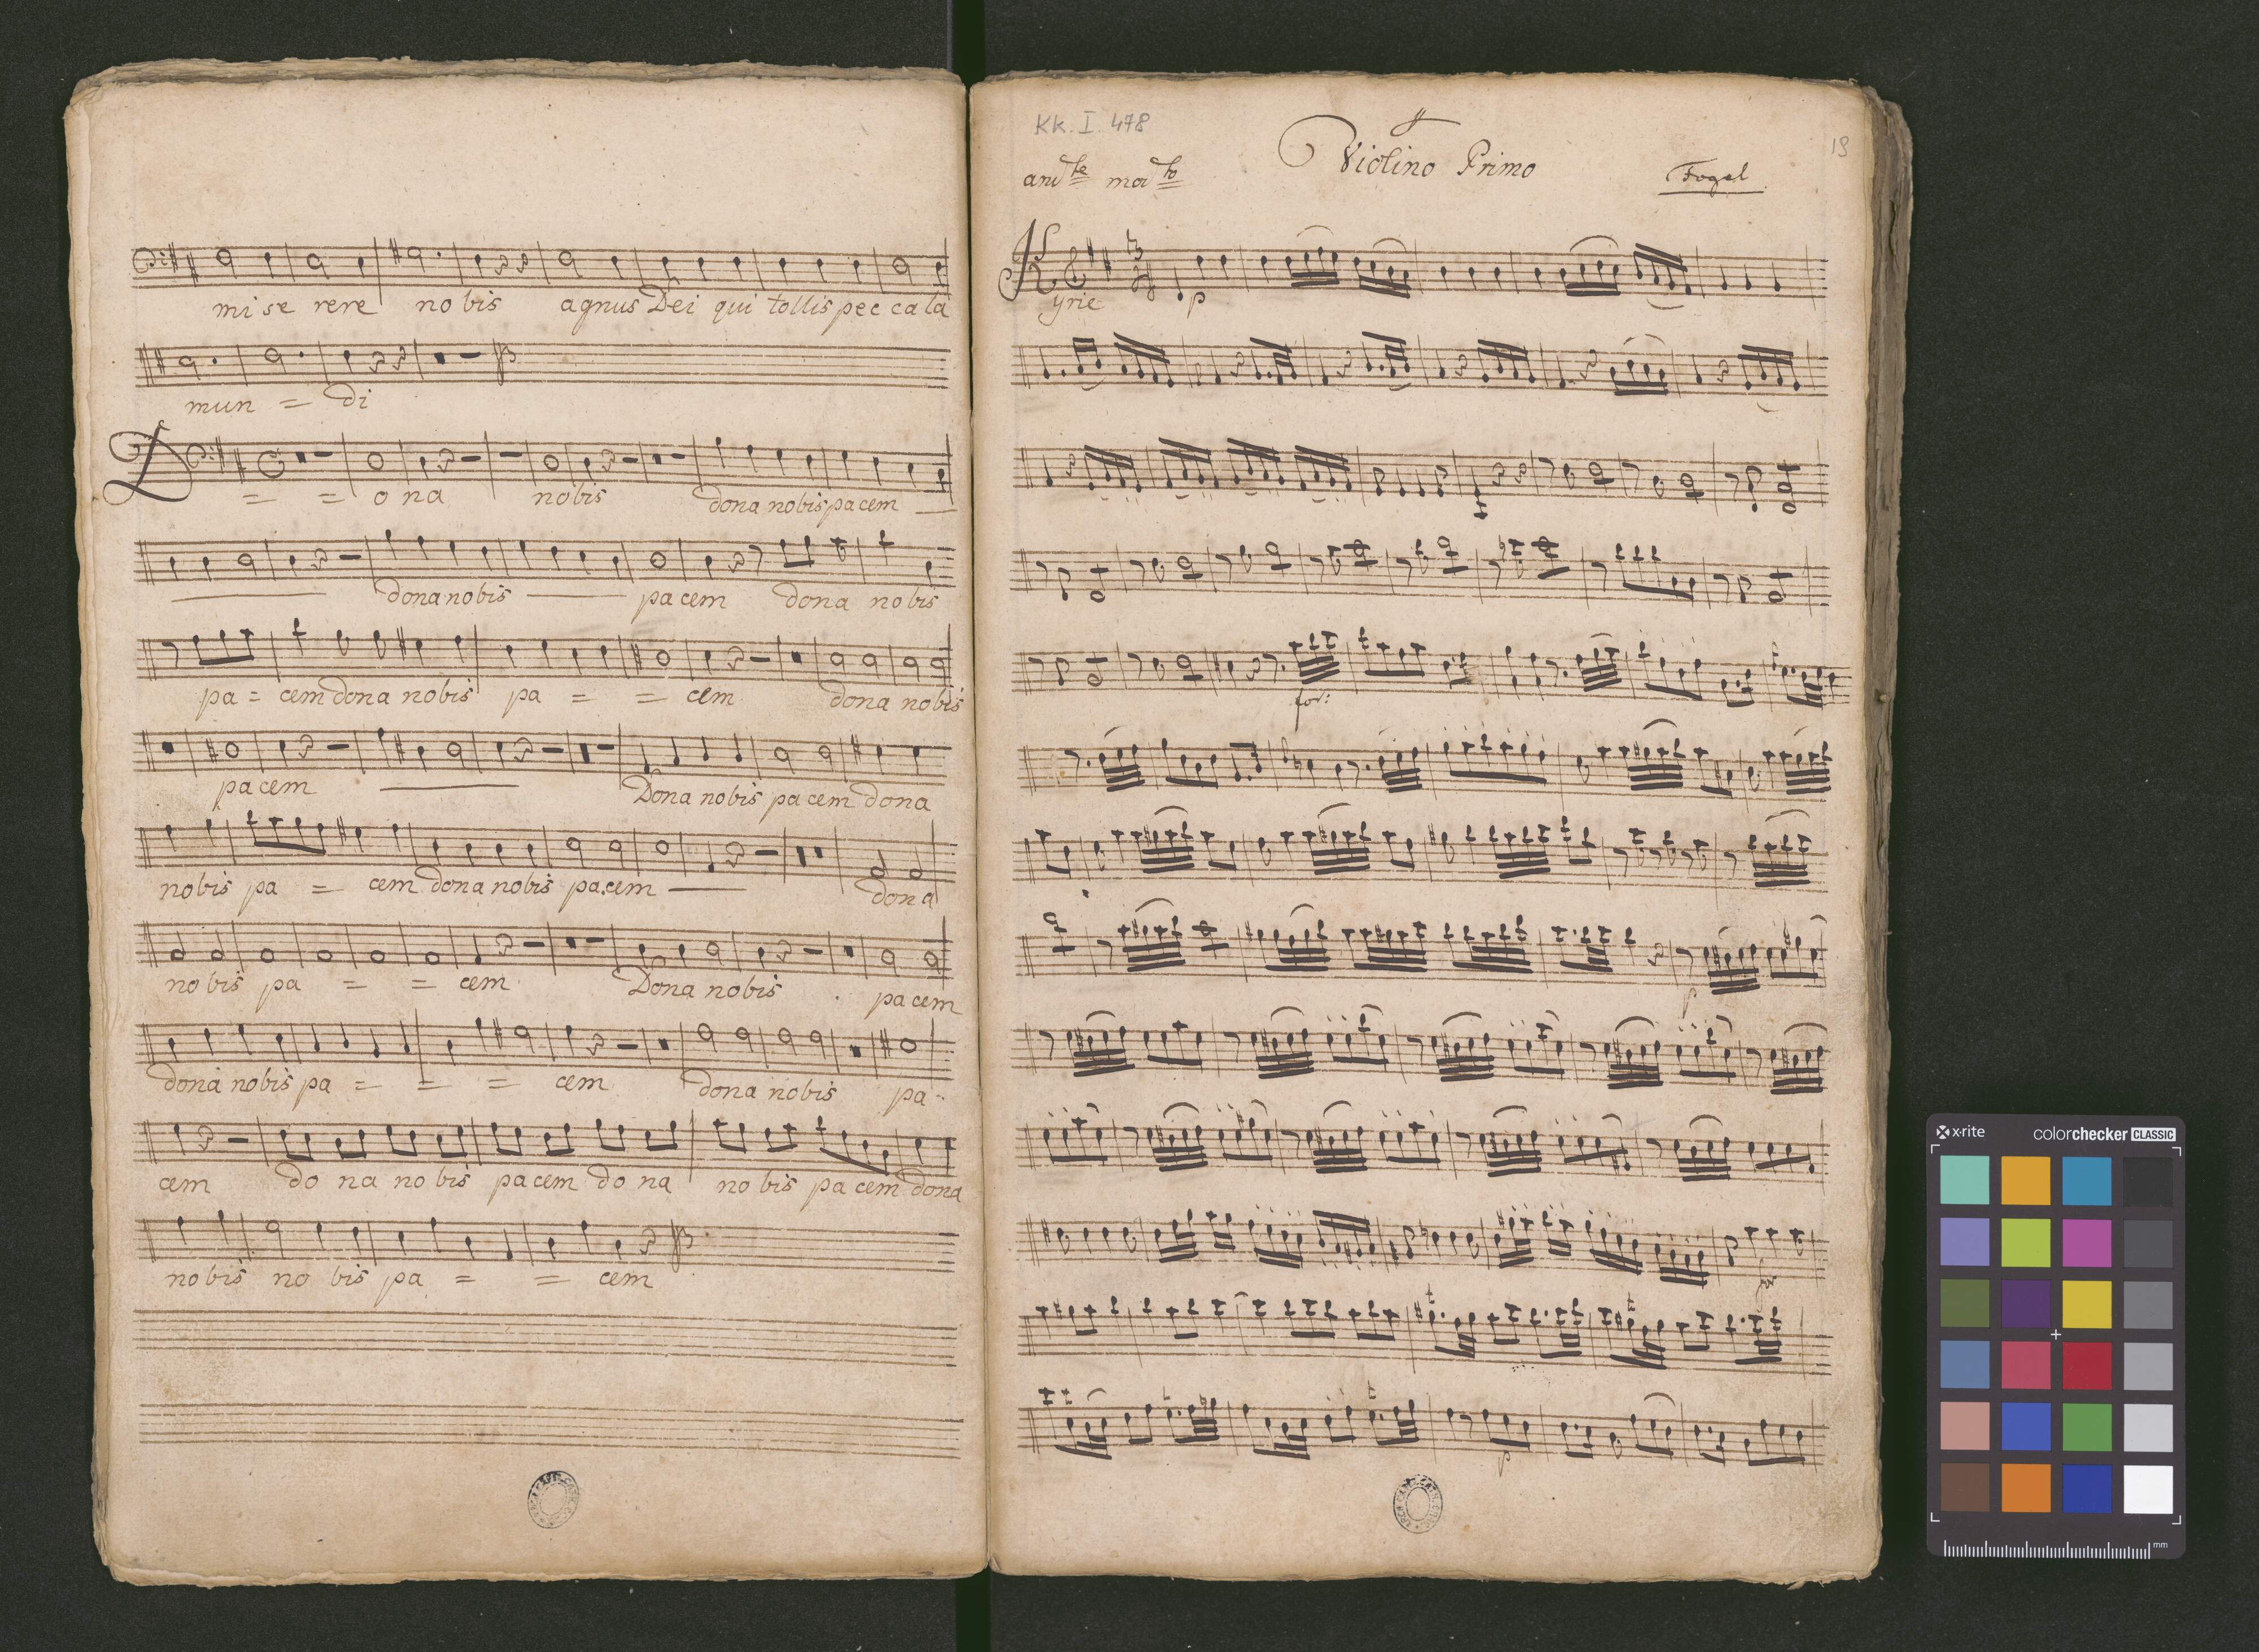 mi se rere no bis agnus Dei qui tollis pec ca ta
mun = di
D = = o na no bis dona nobis pa cem
dona nobis pa cem dona nobis
pa = cem dona nobis pa = = cem dona nobis
pa cem Dona nobis pa cem dona
nobis pa = cem dona nobis pa cem dona
no bis pa = = cem Dona nobis pa cem
dona nobis pa = = = cem dona nobis pa
cem do na no bis pa cem do na no bis pa cem dona
no bis no bis pa = = cem
Kk. I. 478
Violino Primo
19
andte modto
Fogel
Kyrie
p
for:
p
for
p
x-rite colorchecker CLASSIC
mm